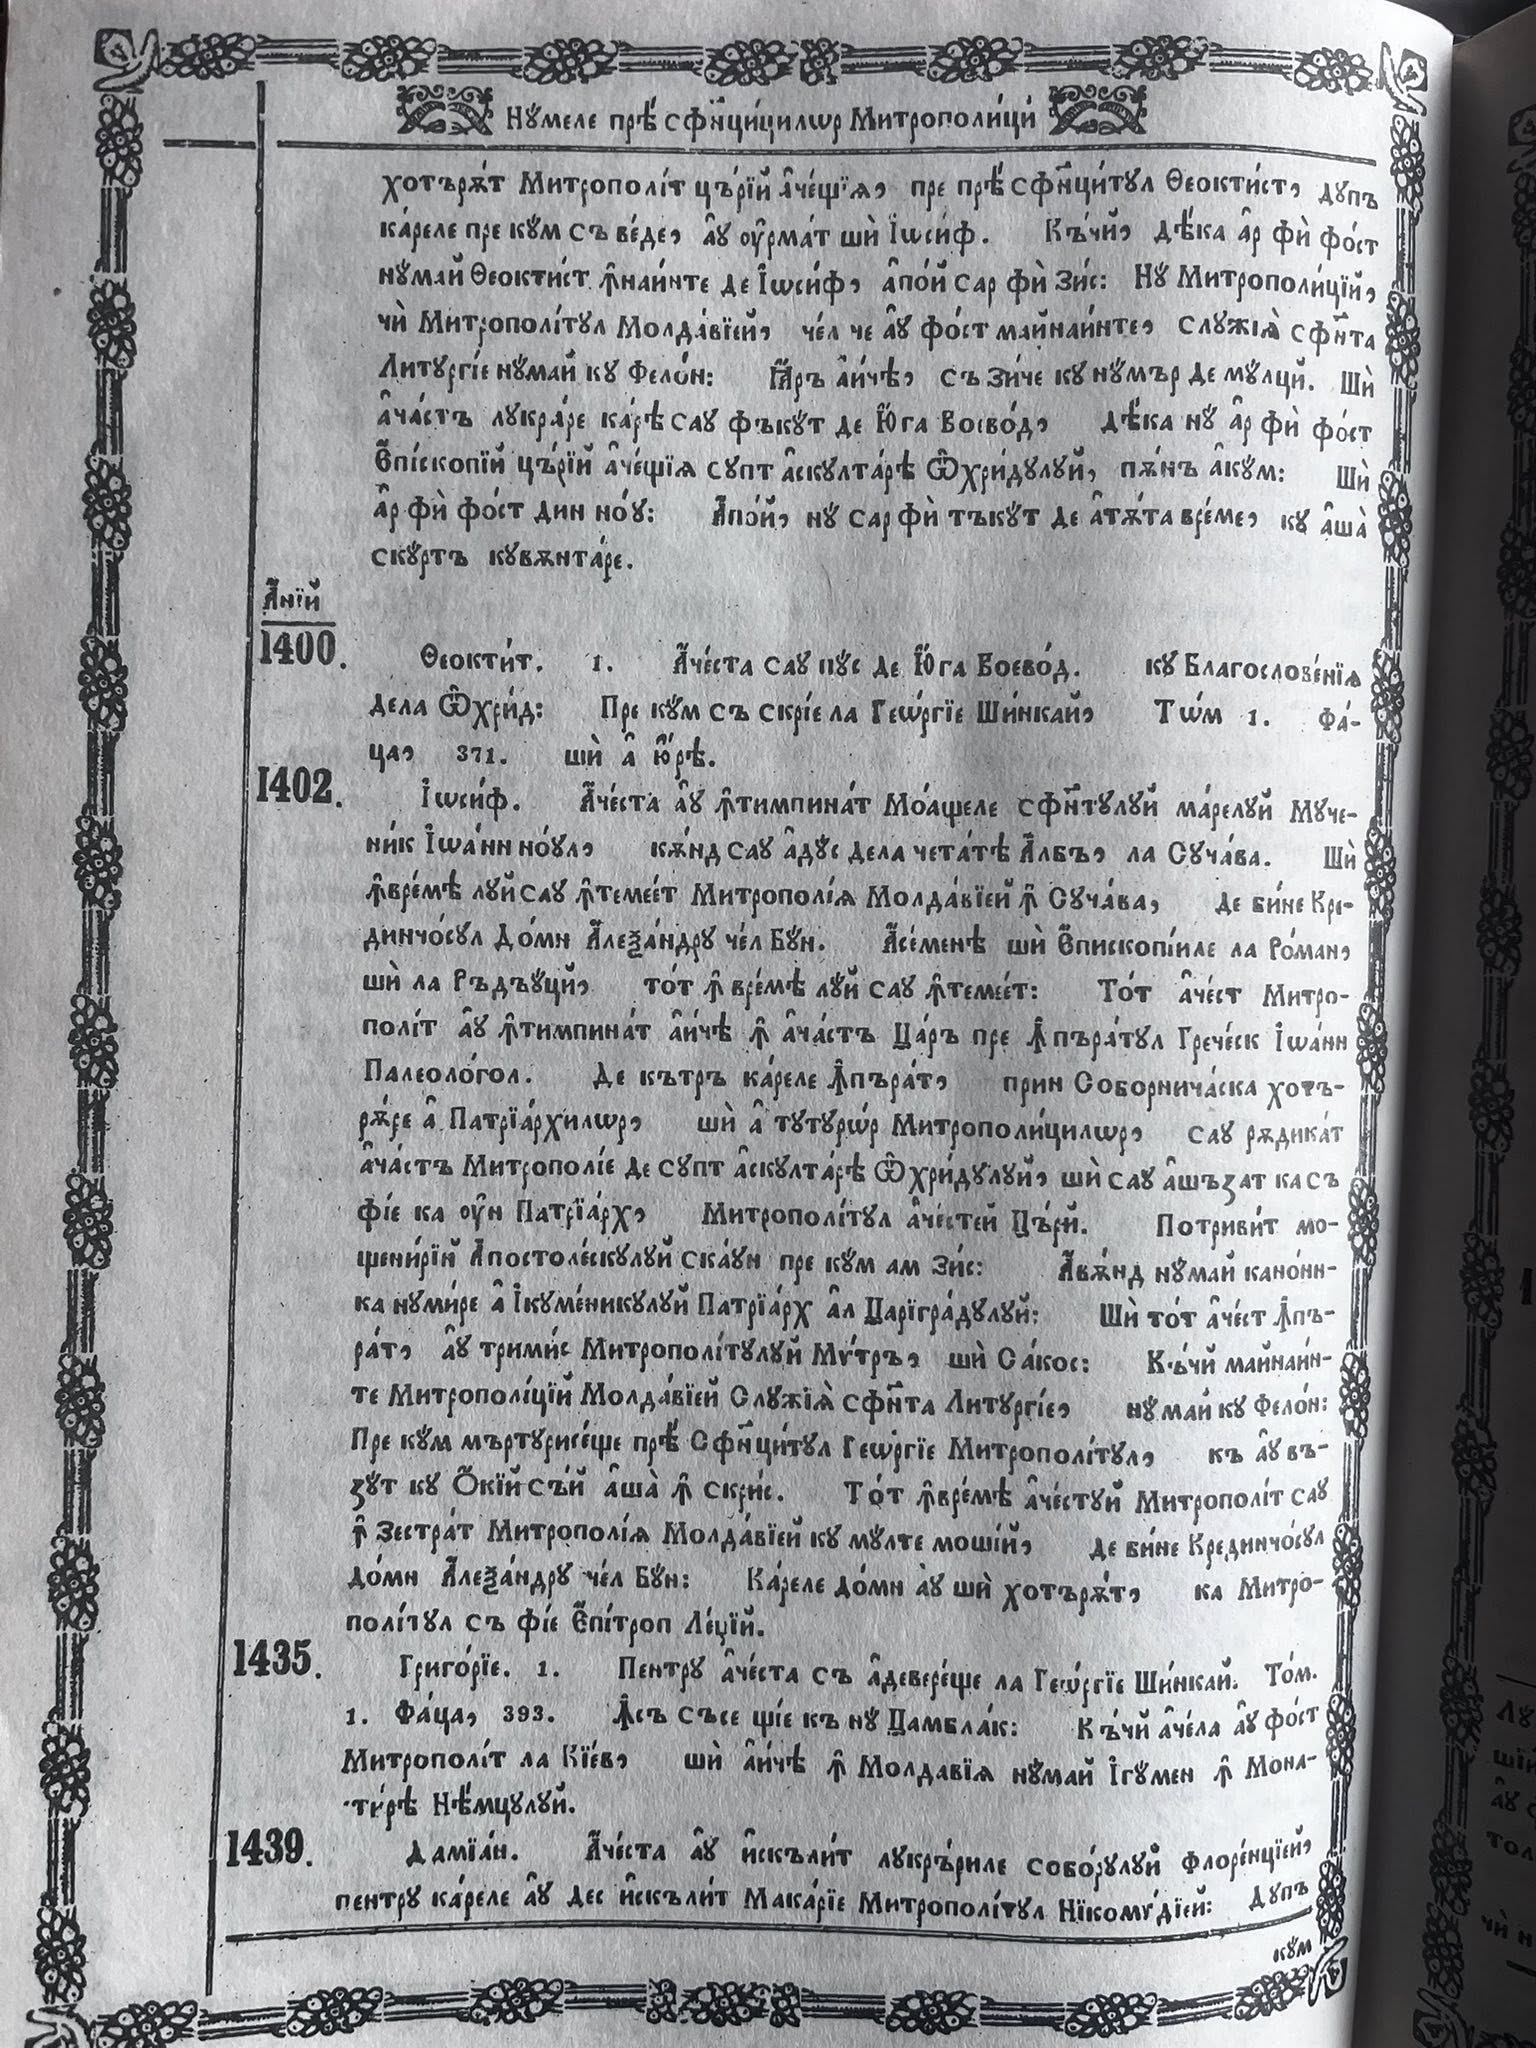 Нꙋ́меле прѣ́ сфн҃ци́цилѡр Митрополи́ци
хотъръ́т Митропол́іт църїй а҆че́щїѧ, пре прѣ́ сфн҃ци́тул Ѳеокти́ст, дупъ
ка́реле пре кꙋм съ ве́де, а҆у оу҆рма́т шѝ І҆ѡси́ф. Къ́чй, дѣ́ка а҆р фѝ фо́ст
нꙋ́май Ѳеокти́ст ꙟ҆наи́нте де І҆ѡси́ф, а҆по́й сар фѝ зи́с: Нꙋ Митрополи́цїй,
чѝ Митропол́ітул Молда́вїей, че́л че а҆у фо́ст майнаи́нте, служїѧ̀ сфн҃та
Литургі́е нꙋ́май ку Фело́н: І҆а́ръ а҆и́чѣ, съ зи́че ку нꙋ́мър де мꙋлцй. Шѝ
а҆ча́стъ лукра́ре ка́рѣ сау фъкꙋ́т де Ю҆га Воево́д, дѣ́ка нꙋ а҆р фѝ фо́ст
Е҆пі́скопїй църїй а҆че́щїѧ супт а҆скулта́рѣ Ѿхри́дулуй, пѫ́нъ а҆кꙋм: Шѝ
а҆р фѝ фо́ст дин но́у: А҆по́й, нꙋ сар фѝ тъкꙋ́т де а҆тѫ́та вре́ме, ку а҆шà
скꙋ́ртъ кувѫнта́ре.
А҆нїй
1400.
Ѳеокти́т. 1. А҆че́ста сау пꙋс де Ю҆га Воево́д. ку Благослове́нїѧ
дела Ѿхри́д: Пре кꙋм съ скрі́е ла Геѡ́ргїе Ши́нкай, То́м 1. Фа́-
ца, 371. шѝ а҆ю́рѣ.
1402.
І҆ѡси́ф. А҆че́ста а҆у ꙟ҆тимпина́т Мо́ащеле сфн҃тулуй ма́релуй Муче-
ни́к І҆ѡа́нн но́ул, кѫнд сау а҆дꙋс дела чета́тѣ А҆лбъ, ла Суча́ва. Шѝ
ꙟ҆вре́мѣ луй сау ꙟ҆темее́т Митропол́іѧ Молда́вїей ꙟ҆ Суча́ва, де би́не Кре-
динчо́сул До́мн А҆леѯа́ндру че́л Бꙋн. А҆се́менѣ шѝ Е҆пископі́иле ла Ро́ман,
шѝ ла Ръдъꙋ́цй, то́т ꙟ҆ вре́мѣ луй сау ꙟ҆темее́т: То́т а҆че́ст Митро-
пол́іт а҆у ꙟ҆тимпина́т а҆и́чѣ ꙟ҆ а҆ча́стъ Ца́ръ пре ꙟ҆пъра́тул Грече́ск І҆ѡа́нн
Палеоло́гол. Де кътръ ка́реле ꙟ҆пъра́т, прин Соборнича́ска хотъ-
рѫ́ре а҆ Патрїа́рхилѡр, шѝ а҆ тутурѡ́р Митрополи́цилѡр, сау рѫдика́т
а҆ча́стъ Митропол́іе де супт а҆скулта́рѣ Ѿхри́дулуй, шѝ сау а҆шъза́т ка съ
фі́е ка оу҆н Патрїа́рх, Митропол́ітул а҆че́стей Цъ́рй. Потриви́т мо-
щени́рїй Апостоле́скулуй ска́ун пре кꙋм ам зи́с: Авѫ́нд нꙋ́май кано́нн-
ка нуми́ре а҆ І҆куме́никулуй Патрїа́рх а҆л Царїгра́дулуй: Шѝ то́т а҆че́ст ꙟ҆пъ-
ра́т, а҆у трими́с Митропол́ітулуй Мѵ́тръ, шѝ Са́кос: Къ́чй майнаи́н-
те Митропол́іцїй Молда́вїей Служїѧ̀ сфн҃та Литургі́е, нꙋ́май ку Фело́н:
Пре кꙋм мъртурисе́ще прѣ́ Сфн҃ци́тул Геѡ́ргїе Митропол́ітул, къ а҆у въ-
зꙋ́т ку О҆кїй съ́й а҆шà ꙟ҆ скри́с. То́т ꙟ҆вре́мѣ а҆че́стуй Митропол́іт сау
ꙟ҆ Зестра́т Митропол́іѧ Молда́вїей ку мꙋ́лте моші́й, де би́не Крединчо́сул
до́мн А҆леѯа́ндру че́л Бꙋн: Ка́реле до́мн а҆у шѝ хотърѫ́т, ка Митро-
пол́ітул съ фі́е Е҆пі́троп Ле́џїй.
1435.
Григо́рїе. 1. Пентру а҆че́ста съ а҆девере́ще ла Геѡ́ргїе Ши́нкай. То́м.
1. Фа́ца, 393. ꙟ҆съ съсе щі́е къ нꙋ Цамбла́к: Къ́чй а҆че́ла а҆у фо́ст
Митропол́іт ла Кїе́в, шѝ а҆и́чѣ ꙟ҆ Молдавїѧ нꙋ́май І҆гꙋ́мен ꙟ҆ Мона-
ти́рѣ Нѣ́мцулуй.
1439.
Дамїа́н. А҆че́ста а҆у и҆скъли́т лукръ́риле собо́рулуй Флоре́нцїей,
пентру ка́реле а҆у дес и҆скъли́т Мака́рїе Митропол́ітул Нїкомѵ́дїей: Дупъ
кꙋм